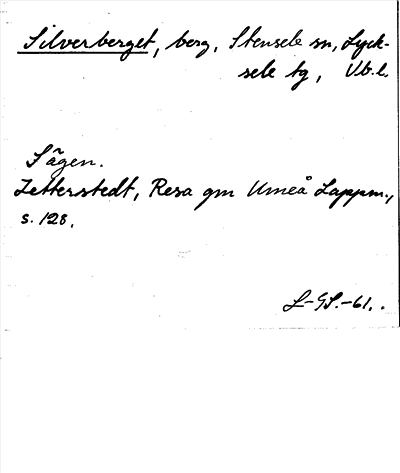 Silverberget, berg, Stensele sn, Lyck-
sele tg, Vb.l.
Sägen.
Zetterstedt, Resa gm Umeå Lappm.,
s. 128.
L-GS.-61.